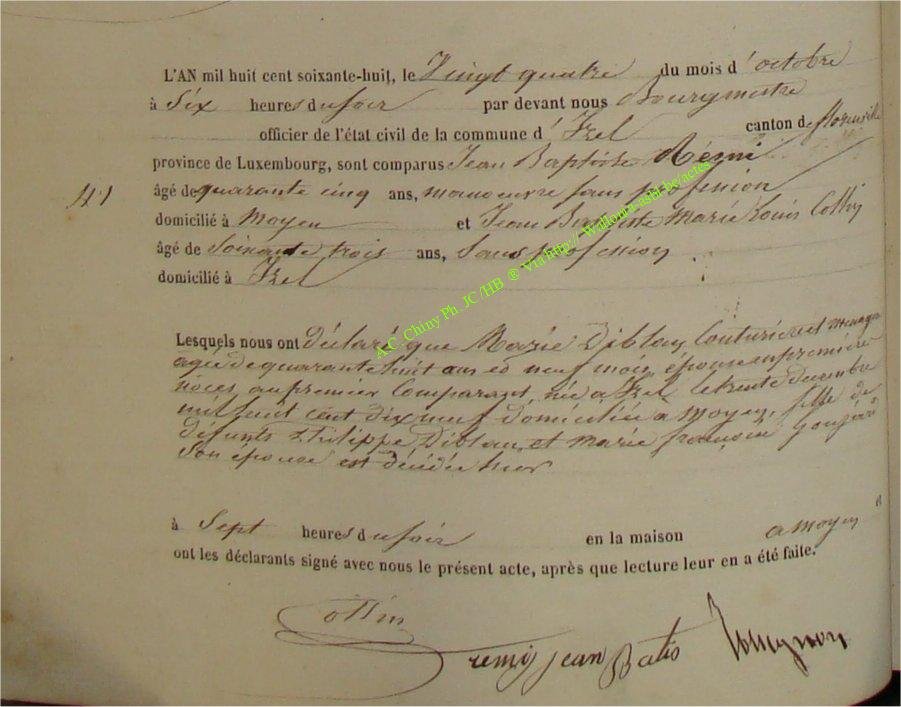 L'AN mil huit cent soixante-huit, le Vingt quatre du mois d'octobre
à Six heures du soir par devant nous Bourgmestre
officier de l'état civil de la commune d'Izel canton de florenville
province de Luxembourg, sont comparus Jean Baptiste Rémi
41 âgé de quarante cinq ans, manoeuvre sans profession
domicilié à Moyen et Jean Baptiste Marie Louis Collin
âgé de Soixante trois ans, Sans profession
domicilié à Izel
Lesquels nous ont déclaré que Marie Diblau, Couturiere et menagère
agée de quarante huit ans et neuf mois, épouse en première
noces, au premier Comparant, née a Izel le trente decembre
mil huit cent dix neuf domiciliée a Moyen, fille de
défunts Philippe Diblau, et Marie françoise
Son épouse est décédée hier
à Sept heures du soir en la maison a Moyen
ont les déclarants signé avec nous le présent acte, après que lecture leur en a été faite.
Collin
remy jean Batis
A.C. Chiny Ph. JC /HB ® Via http:// Wallonia-asbl-be/actes